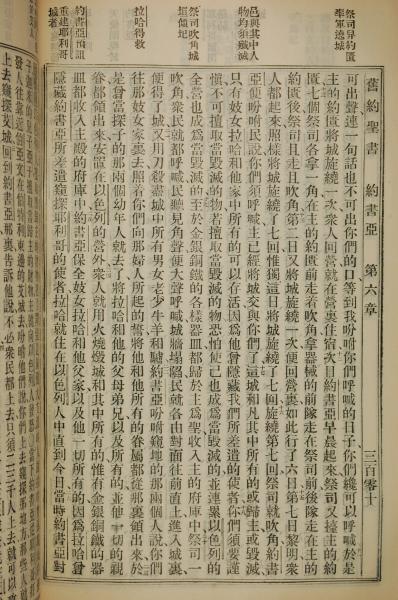 舊約聖書 約書亞 第六章 三百零十
祭司舁約匱
率軍遶城
邑與其中人
物均須殲滅
祭司吹角城
垣傾圮
拉哈得救
約書亞預訊
重建耶利哥
城者
可出聲連一句話也不可出你們的口等到我吩咐你們呼喊的日子你們纔可以呼喊於是
主的約匱將城旋繞一次衆人回營就在營裏住宿次日約書亞早晨起來祭司又擡主的約
匱七個祭司各拿一角在主的約匱前走着吹角拿器械的前隊走在祭司前後隊走在主的
約匱後祭司且走且吹角第二日又將城旋繞一次便回營裏如此行了六日第七日黎明衆
人都起來照樣將城旋繞了七回惟獨這日將城旋繞了七回旋繞第七回祭司就吹角約書
亞便吩咐民說你們須呼喊主已經將城交與你們了這城和凡其中所有的或歸主或毀滅
只有妓女拉哈和他家中所有的可以存活因爲他曾隱藏我們所差遣的使者你們須要謹
愼不可擅取當毀滅的物若擅取當毀滅的物恐怕使己也成爲當毀滅的並連累以色列的
全營也成爲當毀滅的至於金銀銅鐵的各樣器皿都歸於主爲聖收入主的府庫中祭司一
吹角衆民就都呼喊民聽見角聲便大聲呼喊城牆塌陷民就各由對面往前直上進入城裏
便得了城又用刀殺盡城中所有男女老少牛羊和驢約書亞吩咐窺地的那兩個人說你們
往那妓女家裏去照着你們向那婦人所起的誓將他和他所有的眷屬都從那裏領出來於
是曾當探子的那兩個幼年人就去了將拉哈和他的父母弟兄以及所有的並他一切的親
眷都領出來安置在以色列的營外衆人就用火燒燬城和其中所有的惟有金銀銅鐵的器
皿都收入主殿的府庫中約書亞保全妓女拉哈和他父家以及他一切所有的因爲拉哈曾
隱藏約書亞所差遣窺探耶利哥的使者拉哈就住在以色列人中直到今日當時約書亞對
發人往靠近伯亞文在伯特利東邊的艾城去吩咐他們說你們上去窺探那地方那些人
上去窺探艾城回到約書亞那裏告訴他說不必衆民都上去只須二三千人上去就可以